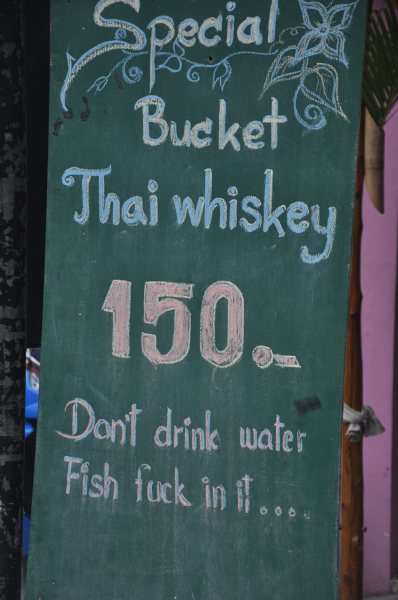 Special
Bucket
Thai whiskey
150.-
Don't drink water
Fish fuck in it....